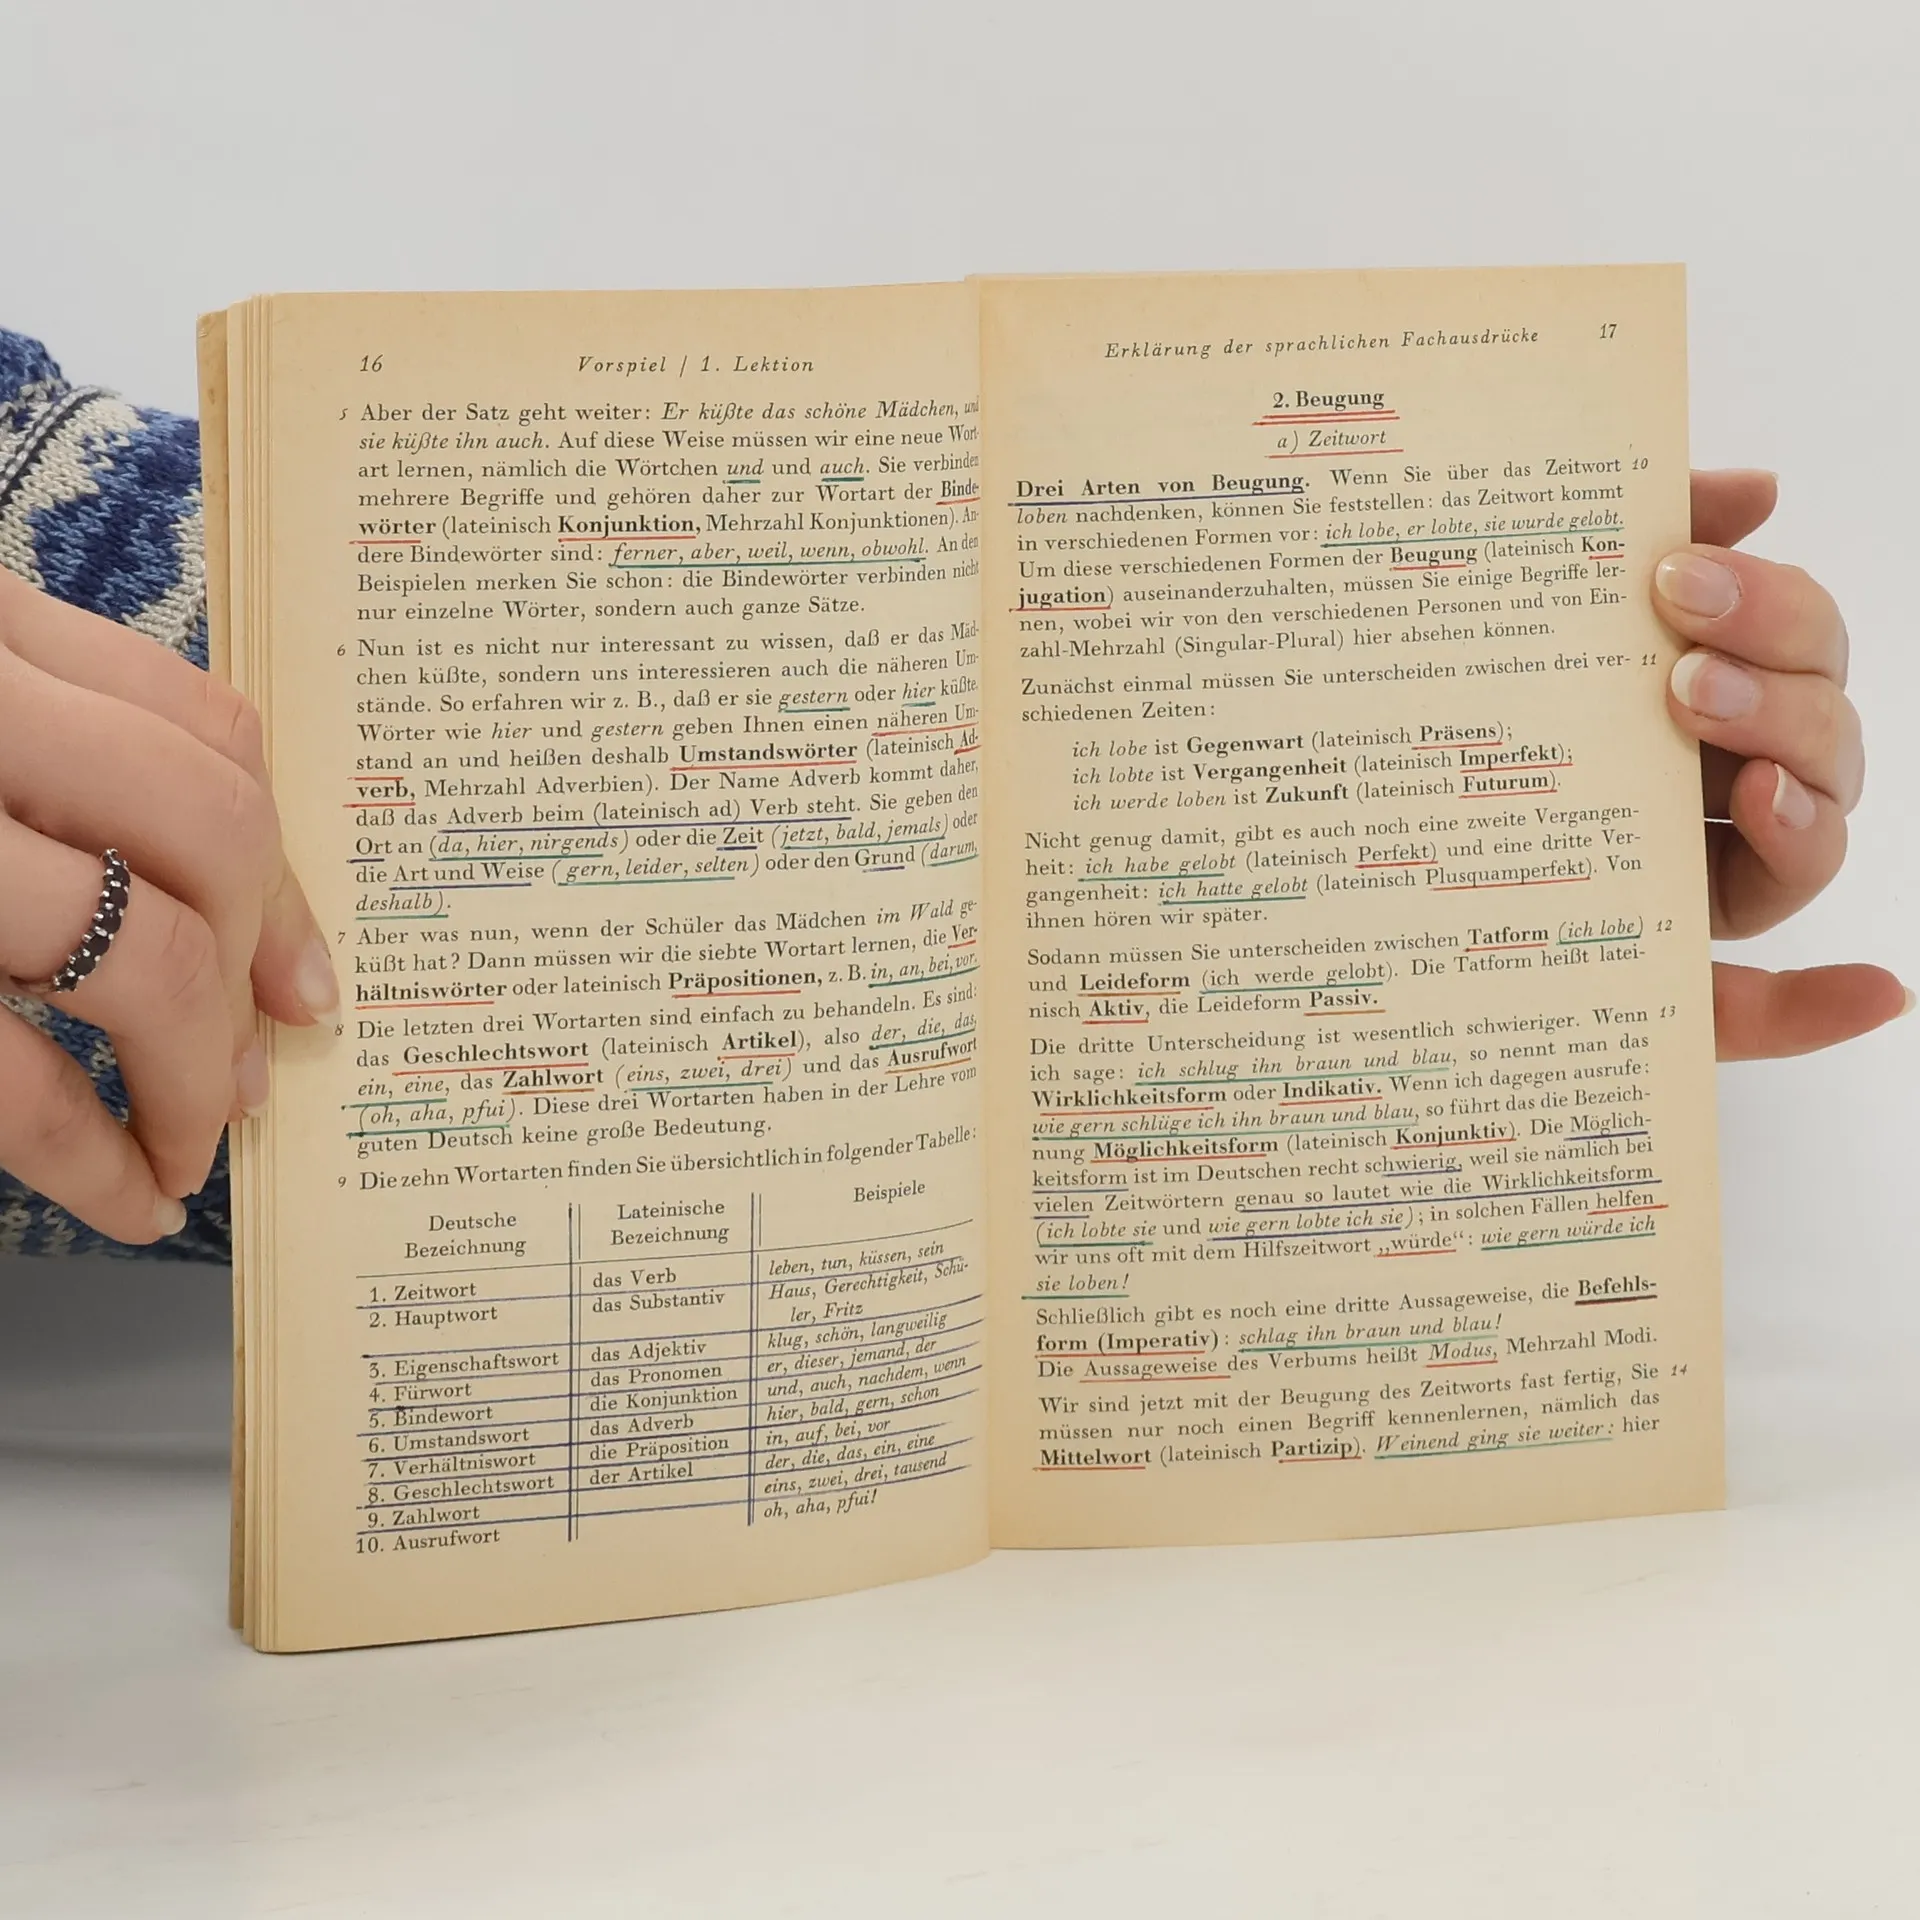 16
Vorspiel / 1. Lektion
5 Aber der Satz geht weiter: Er küßte das schöne Mädchen, und
sie küßte ihn auch. Auf diese Weise müssen wir eine neue Wort-
art lernen, nämlich die Wörtchen und und auch. Sie verbinden
mehrere Begriffe und gehören daher zur Wortart der Binde-
wörter (lateinisch Konjunktion, Mehrzahl Konjunktionen). An-
dere Bindewörter sind: ferner, aber, weil, wenn, obwohl. An den
Beispielen merken Sie schon: die Bindewörter verbinden nicht
nur einzelne Wörter, sondern auch ganze Sätze.
6 Nun ist es nicht nur interessant zu wissen, daß er das Mäd-
chen küßte, sondern uns interessieren auch die näheren Um-
stände. So erfahren wir z. B., daß er sie gestern oder hier küßte.
Wörter wie hier und gestern geben Ihnen einen näheren Um-
stand an und heißen deshalb Umstandswörter (lateinisch Ad-
verb, Mehrzahl Adverbien). Der Name Adverb kommt daher,
daß das Adverb beim (lateinisch ad) Verb steht. Sie geben den
Ort an (da, hier, nirgends) oder die Zeit (jetzt, bald, jemals) oder
die Art und Weise (gern, leider, selten) oder den Grund (darum,
deshalb).
7 Aber was nun, wenn der Schüler das Mädchen im Wald ge-
küßt hat? Dann müssen wir die siebte Wortart lernen, die Ver-
hältniswörter oder lateinisch Präpositionen, z. B. in, an, bei, vor.
8 Die letzten drei Wortarten sind einfach zu behandeln. Es sind:
das Geschlechtswort (lateinisch Artikel), also der, die, das,
ein, eine, das Zahlwort (eins, zwei, drei) und das Ausrufwort
(oh, aha, pfui). Diese drei Wortarten haben in der Lehre vom
guten Deutsch keine große Bedeutung.
9 Die zehn Wortarten finden Sie übersichtlich in folgender Tabelle:
Deutsche Bezeichnung Lateinische Bezeichnung Beispiele
1. Zeitwort das Verb leben, tun, küssen, sein
2. Hauptwort das Substantiv Haus, Gerechtigkeit, Schü-
ler, Fritz
3. Eigenschaftswort das Adjektiv klug, schön, langweilig
4. Fürwort das Pronomen er, dieser, jemand, der
5. Bindewort die Konjunktion und, auch, nachdem, wenn
6. Umstandswort das Adverb hier, bald, gern, schon
7. Verhältniswort die Präposition in, auf, bei, vor
8. Geschlechtswort der Artikel der, die, das, ein, eine
9. Zahlwort eins, zwei, drei, tausend
10. Ausrufwort oh, aha, pfui!
Erklärung der sprachlichen Fachausdrücke
17
2. Beugung
a) Zeitwort
Drei Arten von Beugung. Wenn Sie über das Zeitwort 10
loben nachdenken, können Sie feststellen: das Zeitwort kommt
in verschiedenen Formen vor: ich lobe, er lobte, sie wurde gelobt.
Um diese verschiedenen Formen der Beugung (lateinisch Kon-
jugation) auseinanderzuhalten, müssen Sie einige Begriffe ler-
nen, wobei wir von den verschiedenen Personen und von Ein-
zahl-Mehrzahl (Singular-Plural) hier absehen können.
Zunächst einmal müssen Sie unterscheiden zwischen drei ver- 11
schiedenen Zeiten:
ich lobe ist Gegenwart (lateinisch Präsens);
ich lobte ist Vergangenheit (lateinisch Imperfekt);
ich werde loben ist Zukunft (lateinisch Futurum).
Nicht genug damit, gibt es auch noch eine zweite Vergangen-
heit: ich habe gelobt (lateinisch Perfekt) und eine dritte Ver-
gangenheit: ich hatte gelobt (lateinisch Plusquamperfekt). Von
ihnen hören wir später.
Sodann müssen Sie unterscheiden zwischen Tatform (ich lobe) 12
und Leideform (ich werde gelobt). Die Tatform heißt latei-
nisch Aktiv, die Leideform Passiv.
Die dritte Unterscheidung ist wesentlich schwieriger. Wenn 13
ich sage: ich schlug ihn braun und blau, so nennt man das
Wirklichkeitsform oder Indikativ. Wenn ich dagegen ausrufe:
wie gern schlüge ich ihn braun und blau, so führt das die Bezeich-
nung Möglichkeitsform (lateinisch Konjunktiv). Die Möglich-
keitsform ist im Deutschen recht schwierig, weil sie nämlich bei
vielen Zeitwörtern genau so lautet wie die Wirklichkeitsform
(ich lobte sie und wie gern lobte ich sie); in solchen Fällen helfen
wir uns oft mit dem Hilfszeitwort „würde“: wie gern würde ich
sie loben!
Schließlich gibt es noch eine dritte Aussageweise, die Befehls-
form (Imperativ): schlag ihn braun und blau!
Die Aussageweise des Verbums heißt Modus, Mehrzahl Modi.
Wir sind jetzt mit der Beugung des Zeitworts fast fertig, Sie 14
müssen nur noch einen Begriff kennenlernen, nämlich das
Mittelwort (lateinisch Partizip). Weinend ging sie weiter: hier